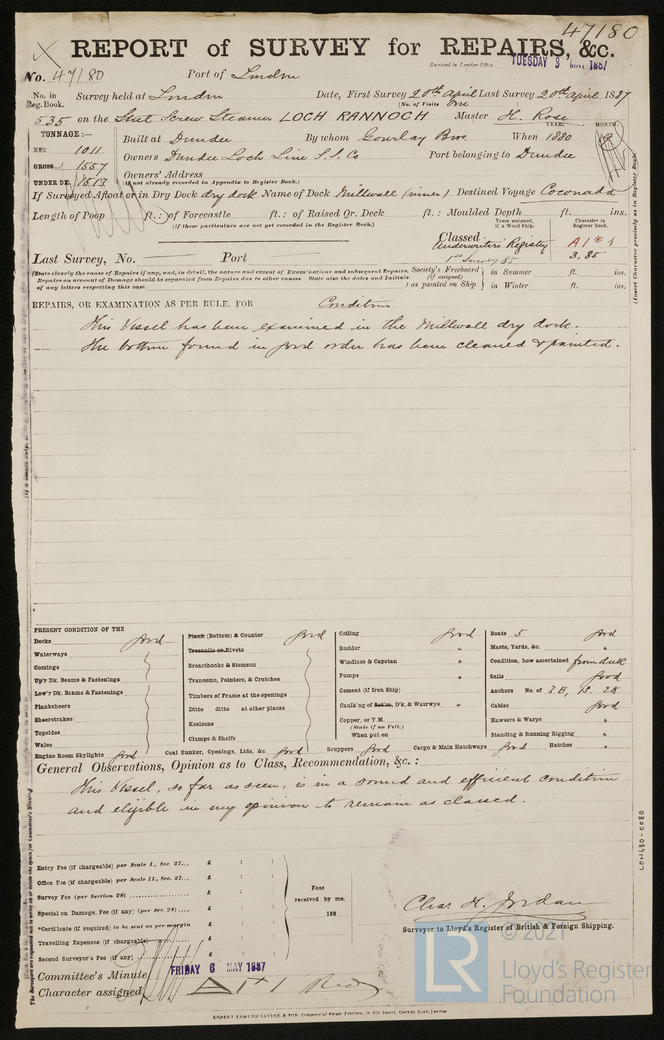 47180
REPORT of SURVEY for REPAIRS, &c.
Received in London Office TUESDAY 3 MAY 1887
No. 47180 Port of London
No. in Reg. Book. Survey held at London Date, First Survey 20th April Last Survey 20th April 1887
(No. of Visits One
535 on the Steel Screw Steamer LOCH RANNOCH Master H. Rose
TONNAGE:—
YEAR. MONTH.
NET 1011 Built at Dundee By whom Gourlay Bros. When 1880
GROSS 1557 Owners Dundee Loch Line S.S. Co Port belonging to Dundee
UNDER DK. 1513 Owners' Address
(if not already recorded in Appendix to Register Book.)
If Surveyed Afloat or in Dry Dock dry dock Name of Dock Millwall (inner) Destined Voyage Coconada
Length of Poop ft.: of Forecastle ft.: of Raised Qr. Deck ft.: Moulded Depth ft. ins.
(if these particulars are not yet recorded in the Register Book.)
Years assigned, if a Wood Ship. Character in Register Book.
Classed Underwriters' Registry A1
1st Survey 85 3.85
Last Survey, No. Port
(State clearly the cause of Repairs if any, and, in detail, the nature and extent of Examinations and subsequent Repairs.
Repairs on account of Damage should be separated from Repairs due to other causes. State also the dates and Initials
of any letters respecting this case.
Society's Freeboard (if assigned) as painted on Ship in Summer ft. ins.
in Winter ft. ins.
(Insert Character precisely as in Register Book)
REPAIRS, OR EXAMINATION AS PER RULE, FOR Condition
This Vessel has been examined in the Millwall dry dock.
The bottom found in good order has been cleaned & painted.
PRESENT CONDITION OF THE
Decks good
Waterways
Comings
Up'r Dk. Beams & Fastenings
Low'r Dk. Beams & Fastenings
Planksheers
Sheerstrakes
Topsides
Wales
Engine Room Skylights good
Plank (Bottom) & Counter good
Treenails or Rivets
Breasthooks & Stemson
Transoms, Pointers, & Crutches
Timbers of Frame at the openings
Ditto ditto at other places
Keelsons
Clamps & Shelfs
Coal Bunker, Openings, Lids, &c. good
Ceiling good
Rudder "
Windlass & Capstan "
Pumps "
Cement (if Iron Ship)
Caulk'ng of Bot'm, D'k, & Watrwys "
Copper, or Y.M.
(State if on Felt.)
When put on
Scuppers good Cargo & Main Hatchways good Hatches "
Boats 5 good
Masts, Yards, &c. "
Condition, how ascertained from deck
Sails good
Anchors No. of 3B, 1S. 2K
Cables good
Hawsers & Warps "
Standing & Running Rigging "
General Observations, Opinion as to Class, Recommendation, &c.:
This Vessel, so far as seen, is in a sound and efficient condition
and eligible in my opinion to remain as classed.
Entry Fee (if chargeable) per Scale I., Sec. 27... £ : :
Office Fee (if chargeable) per Scale II., Sec. 27... £ : :
Survey Fee (per Section 28) £ : :
Special on Damage, Fee (if any) (per Sec. 28) £ : :
*Certificate (if required) to be sent as per margin £ : :
Travelling Expenses (if chargeable) £ : :
Second Surveyor's Fee (if any) £ : :
Fees received by me, 188
Chas. H. Jordan
Surveyor to Lloyd's Register of British & Foreign Shipping.
Committee's Minute FRIDAY 6 MAY 1887
Character assigned
LON480-0080
ROBERT EDMUND TAYLOR & SON
© 2021
LR
Lloyd's Register
Foundation